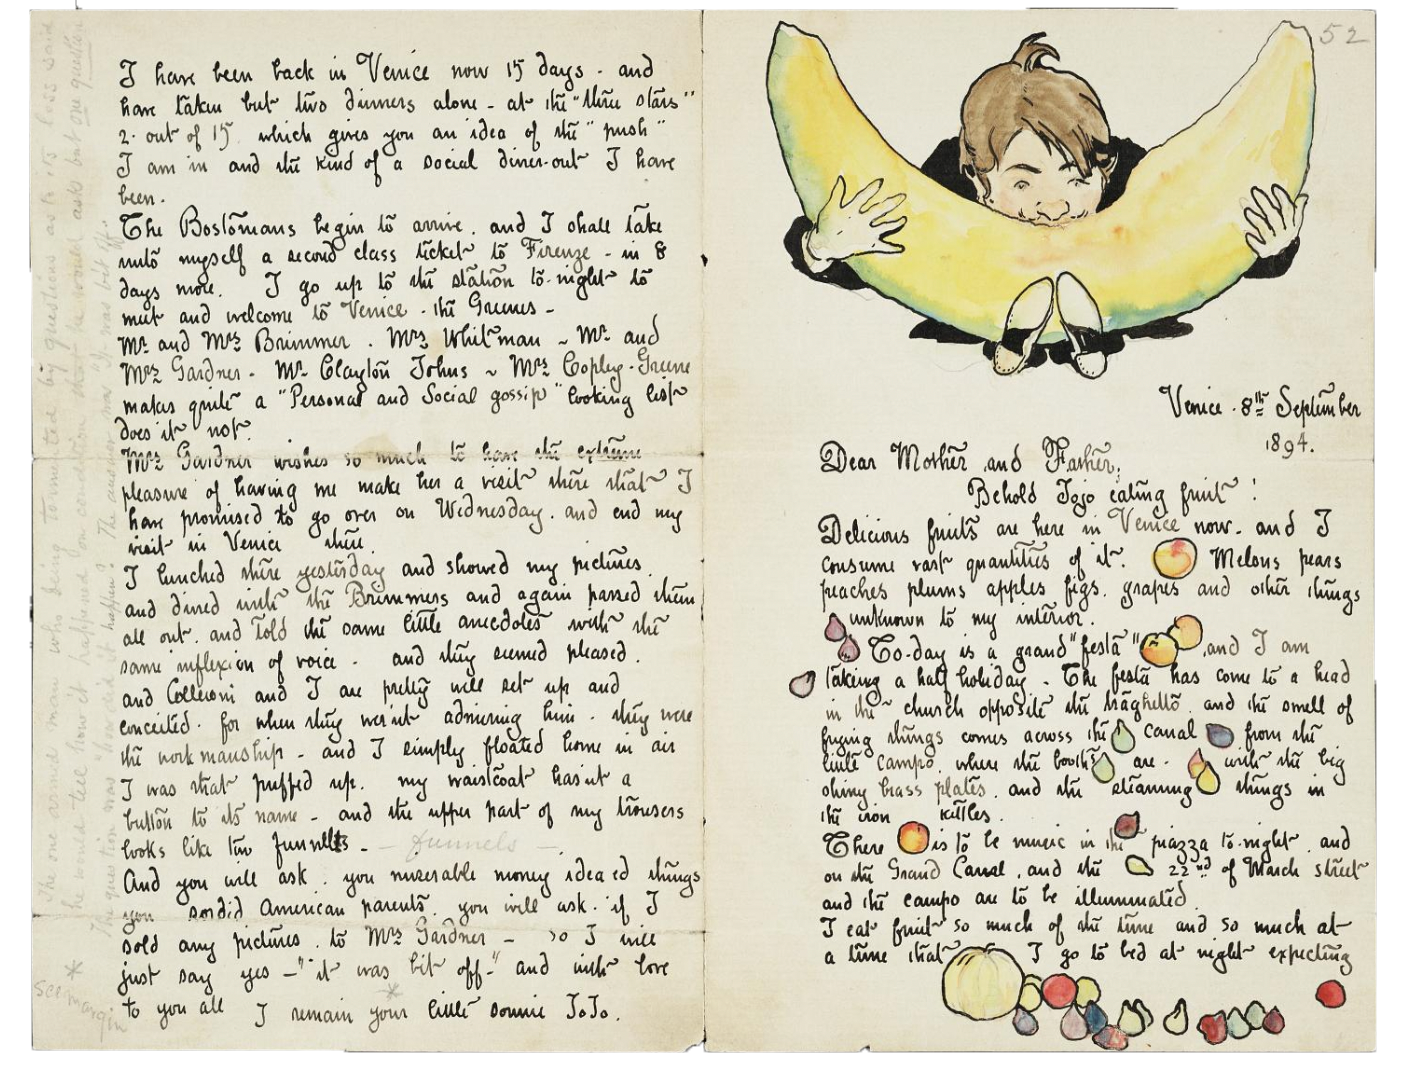 I have been back in Venice now 15 days - and
have taken but two dinners alone - at the "three stars"
2. out of 15. which gives you an idea of the "push"
I am in and the kind of a social diner-out I have
been.
The Bostonians begin to arrive. and I shall take
unto myself a second class ticket to Firenze - in 8
days more. I go up to the station to-night to
meet and welcome to Venice - the Greenes -
Mr and Mrs Brimmer. Mrs Whitman - Mr and
Mrs Gardner - Mr Clayton Johns - Mrs Copley-Greene
makes quite a "Personal and Social gossip" looking list
does it not.
Mrs Gardner wishes so much to have the extreme
pleasure of having me make her a visit there that I
have promised to go over on Wednesday. and end my
visit in Venice there.
I lunched there yesterday and showed my pictures.
and dined with the Brimmers and again passed them
all out. and told the same little anecdotes with the
same inflexion of voice - and they seemed pleased.
and Colleoni and I are pretty well set up and
conceited. for when they wer'nt admiring him - they were
the workmanship - and I simply floated home in air
I was that puffed up. my waistcoat hasn't a
button to its name - and the upper part of my trousers
looks like two funnells - - funnels -
And you will ask. you miserable money idea ed things
you sordid American parents. you will ask - if I
sold any pictures. to Mrs Gardner - so I will
just say yes - "it was bit off -" and with love
*
to you all I remain your little sonnie JoJo.
*
See margin
The one armed man who being tormented by questions as to its loss said
he would tell how it happened on condition that he would ask but one question
The question was "how did it happen? The answer was "It was bit off".
52
Venice - 8th September
1894.
Dear Mother and Father;
Behold Jojo eating fruit!
Delicious fruits are here in Venice now. and I
consume vast quantities of it. Melons pears
peaches plums apples figs. grapes and other things
unknown to my interior.
To-day is a grand "festa" , and I am
taking a half holiday - The festa has come to a head
in the church opposite the traghetto. and the smell of
frying things comes across the canal from the
little campo. where the booths are - with the big
shiny brass plates. and the steaming things in
the iron kettles.
There is to be music in the piazza to-night. and
on the Grand Canal, and the 22nd of March street
and the campo are to be illuminated.
I eat fruit so much of the time and so much at
a time that I go to bed at night expecting